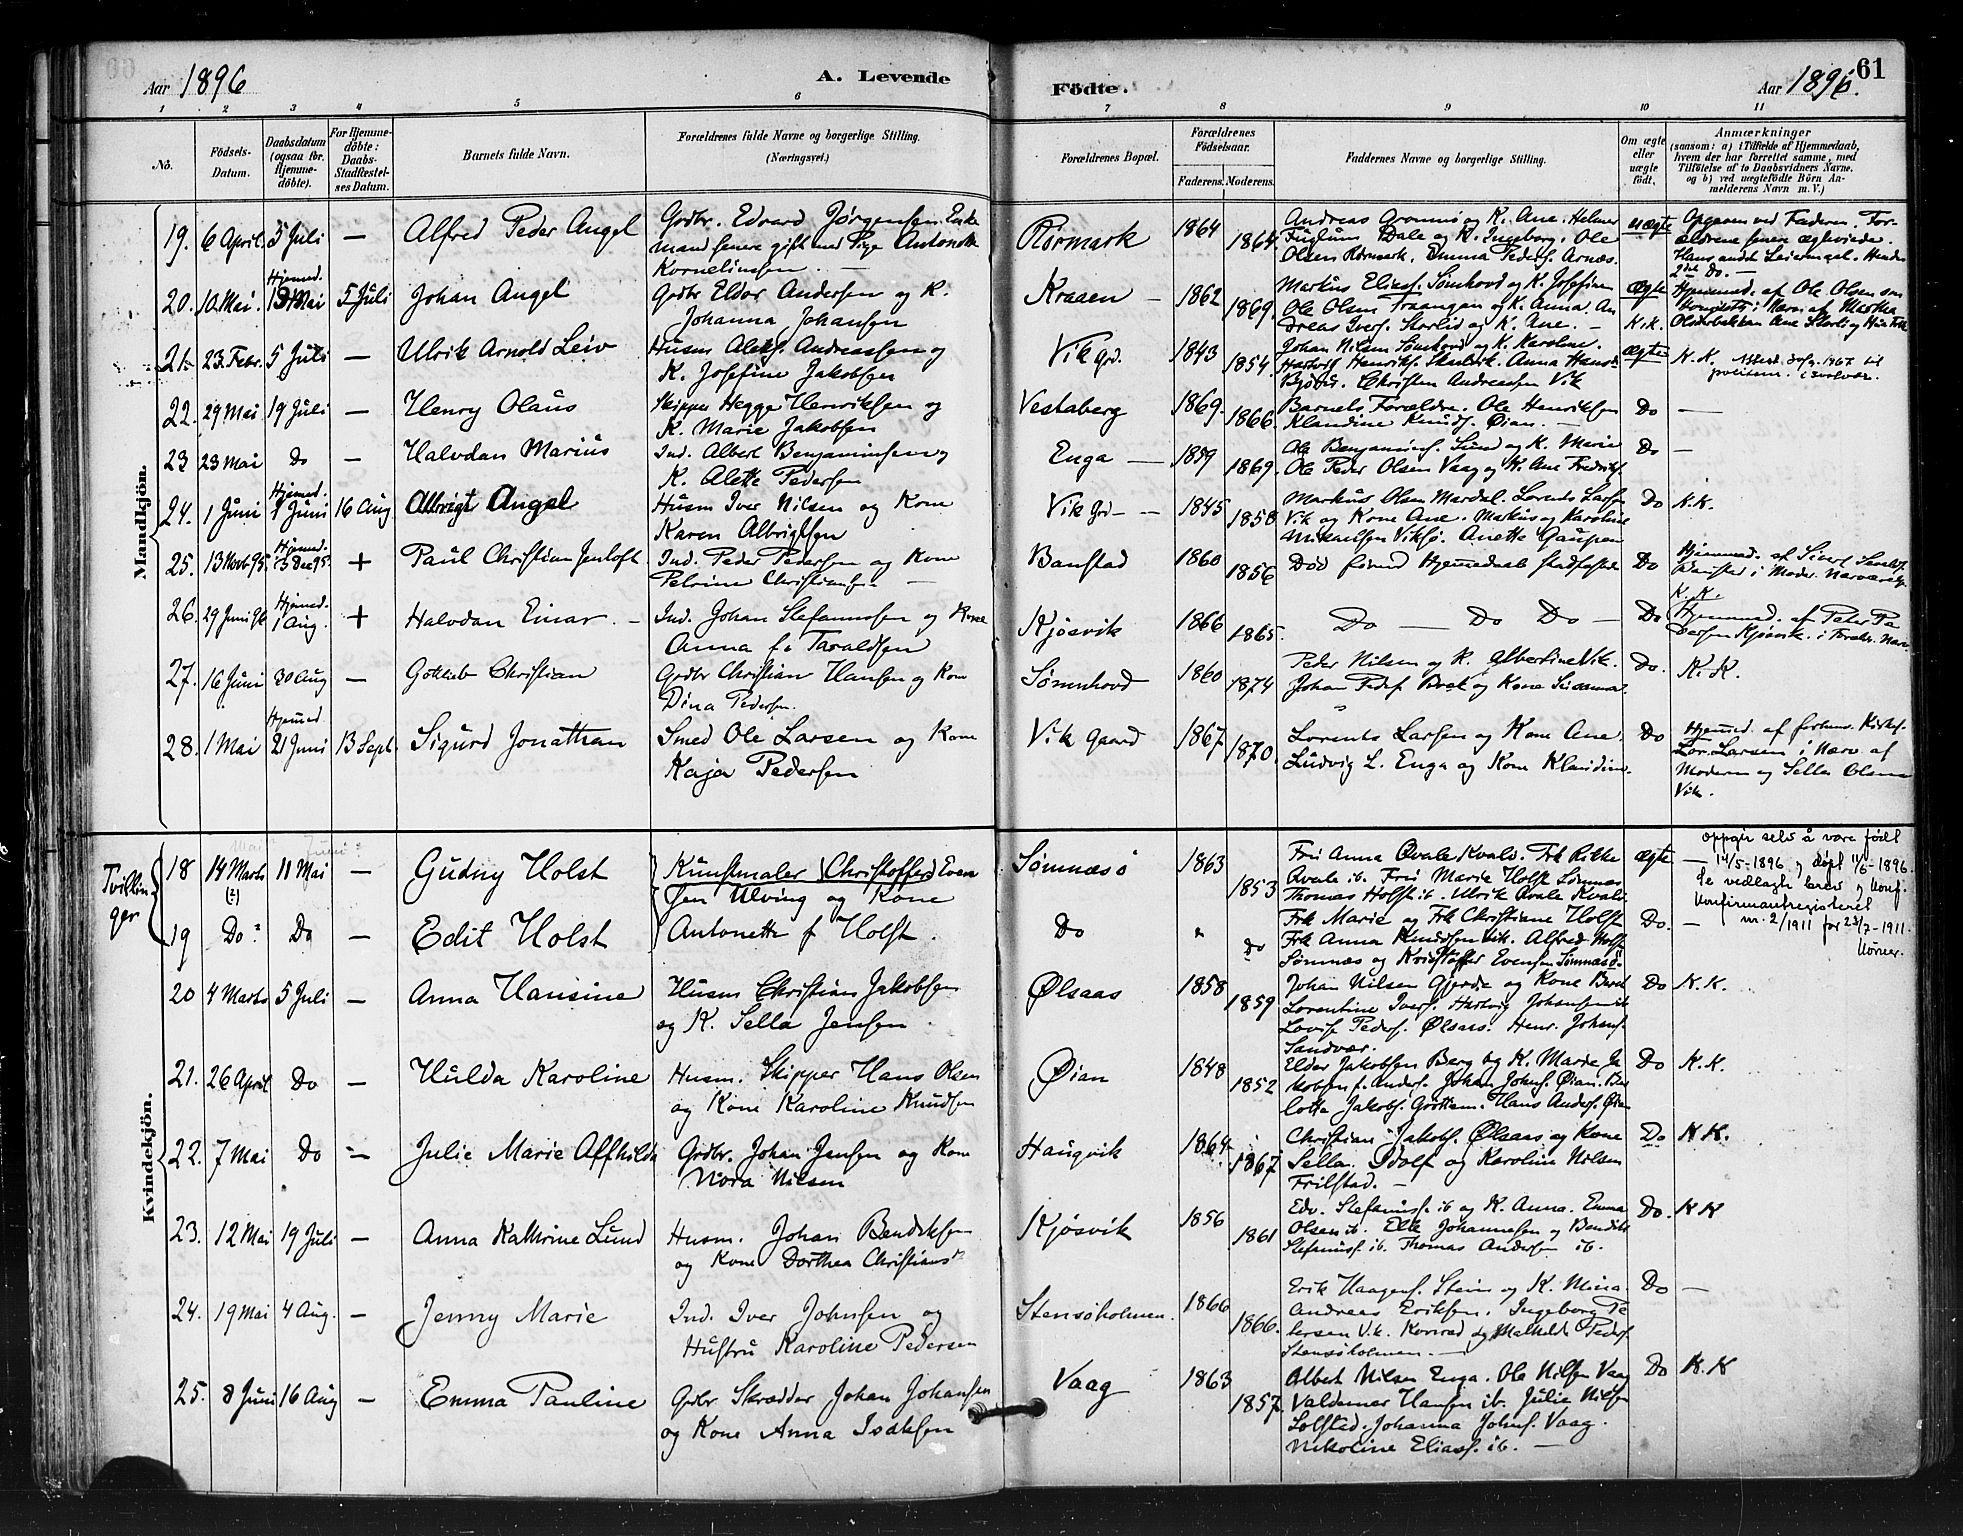 Aar 1896
A. Levende
Födte.
Aar 1896.
61
1 2 3 4 5 6 7 8 9 10 11
No.
Födsels-
Datum.
Daabsdatum
(ogsaa for
Hjemme-
döbte).
For Hjemme-
döbte:
Daabs-
Stadfæstel-
ses Datum.
Barnets fulde Navn.
Forældrenes fulde Navne og borgerlige Stilling.
(Næringsvei.)
Forældrenes Bopæl.
Forældrenes
Födselsaar.
Faderens. Moderens.
Faddernes Navne og borgerlige Stilling.
Om ægte
eller
uægte
födt.
Anmærkninger
(saasom: a) i Tilfælde af Hjemmedaab,
hvem der har forrettet samme, med
Tilföielse af to Daabsvidners Navne,
og b) ved uægtefödte Börn An-
melderens Navn m. V.)
Mandkjön.
19. 6 April. 5 Juli — Alfred Peder Angel
Godbr. Edvard Jørgensen. Enke
mand senere gift med Pige Antonette
Kornelinssen. —
Rørmark 1864 1864
Andreas Aronsnø og K. Ane. Helmer
Fuglum Dale og K. Ingeborg. Ole
Olsen Rørmark. Emma Peders. Arnæs.
uægte
Opgiven ved Faderen. For-
ældrene senere ægteviede.
Hans andet Leiermaal. Hendes
2det Do. —
20. 10 Mai. Hjemmed. 13 Mai 5 Juli Johan Angel
Godbr Eldor Andersen og K.
Johanna Johansen
Kraaen — 1862 1869.
Markus Eliass. Sømhovd og K. Josefine
Ole Olsen Traangen og K. Anna. An
dreas Ivers. Storlid og K. Ane. —
ægte K.K.
Hjemmed. af Ole Olsen
21. 23. Febr. 5 Juli — Ulrik Arnold Leiv
Husm Aleks. Andreassen og
K. Josefine Jakobsen
Vik Grd. 1843 1854.
Johan Nilsen Sømhovd og K. Karoline.
Hartvig Henriks. Anna Hans
Christen Andreassen Vik
ægte K. K.
22. 29 Mai 19 Juli — Henry Olaus
Skipper Hegge Henriksen og
K. Marie Jakobsen
Vestaberg 1869. 1866
Barnets Forældre. Ole Henriksen
Klandine Knuds. Øian. —
Do —
23 23 Mai Do — Halvdan Marius
Ind. Albert Benjaminsen og
K. Alette Pedersen
Enga — 1859 1869.
Ole Benjamins. Lund og K. Marie
Ole Peder Olsen Vaag og K. Ane Fredriks
Do —
24. 1 Juni Hjemmed. 1 Juni 16 Aug. Albrigt Angel
Husm Iver Nilsen og Kone
Karen Albrigtsen
Vik Grd — 1845 1858
Markus Olsen Mardal. Lorents Larsen
Vik og Kone Ane. Markus og Karoline
Mikaelsen Viksø. Anette Gaupen
Do K.K.
25. 13 Novb 95. Hjemmed. 25 Dec 95. + Paul Christian Jentoft
Ind. Peder Pedersen og Kone
Petrine Christiansen —
Banstad 1860 1856
Død førend Hjemmedaab stadfæstet
Do
26. 29 Juni 96 Hjemmed. 1 Aug. + Halvdan Einar —
Ind. Johan Stefanussen og Kone
Anna f. Taraldsen
Kjøsvik 1866 1865.
Do — Do Do —
Do
K. K.
Hjemmed. af Peter Pe
dersen Kjøsvik. i Foræl. Nærv.
27. 16 Juni 30 Aug — Gottlieb Christian
Grdbr Christian Hansen og Kone
Dina Pedersen.
Sømnhovd 1860 1874
Peder Nilsen og K. Albertine Vik.
Johan Peders. Brek og Kone Susanna
Do. K. K.
28. 1 Mai Hjemmed 21 Juni 13 Sept. Sigurd Jonathan
Smed Ole Larsen og Kone
Kaja Pedersen
Vik Gaard 1867 1870.
Lorents Larsen og Kone Ane.
Ludvig L. Enga og Kone Klaudine.
Do
Hjemmed. af
Lor. Larsen i Nærv af
Moderen og Sella Olsen
Vik.
Kvindekjön.
Tvillin
ger
18 14 Marts (?) 11 Mai — Gudny Holst
Mai? Juni?
Kunstmaler (Christoffer) Even
sen Ulving og Kone
Antonette f Holst.
Sømnæsø 1863 1853
Fru Anna Qvale Kvalø. Frk Rikke
Qvale ib. Fru Marie Holst Sømnæs
Thomas Holst ib. Ulrik Qvale Kvalø
ægte —
oppgir selv å være født
14/5-1896 og døpt 11/6-1896.
Se vedlagte brev og konf.
Konfirmantregisteret
nr. 2/1911 for 23/7-1911.
19 Do? Do — Edit Holst
Do " Do
Frk Marie og Frk Christiane Holst
Frk Anna Knudsen Vik. Alfred Holst
Sømnæs og Kristoffer Evensen Sømnæsø.
Do. —
20 4 Marts 5 Juli — Anna Hansine
Husm Christian Jakobsen
og K. Sella Jensen.
Ølsaas 1858 1859
Johan Nilsen Gjerde og Kone Berit
Lorentine Ivers. Hartvig Johansen
Lovise Peders. Ølsaas. Henr. Johans.
Sandvær.
Do K.K.
21. 26 April Do — Hulda Karoline
Husm. Skipper Hans Olsen
og Kone Karoline Knudsen
Øian 1848 1852
Elder Jakobsen Berg og K. Marie Ja
kobsen f. Anders. Johan Johns. Øian. Ber
lotte Jakobs. Grøttem. Hans Anders. Øian
Do K.K.
22. 7 Mai Do — Julie Marie Affhilda
Grdbr. Johan Jensen og Kone
Nora Nilsen
Haugvik 1864 1867
Christian Jakobs. Ølsaas og Kone
Sella. Adolf og Karoline Nilsen
Frilstad. —
Do K K.
23. 12 Mai 19 Juli — Anna Kathrine Lund
Husm. Johan Bendiksen
og Kone Dorthea Christians
Kjøsvik 1856 1861
Edv. Stefanuss. ib og K. Anna. Emma
Olsen ib. Elle Johannesen og Bendikt
Stefanuss. ib. Thomas Andersen ib.
Do. K K
24. 19 Mai 4 Aug. — Jenny Marie
Ind. Iver Johnsen og
Hustru Karoline Pedersen
Stensøholmen. 1866 1866.
Erik Haagens. Stein og K. Mina.
Andreas Eriksen. Ingeborg Pe
tersen Vik. Konrad og Mathilde Peders.
Stensøholmen. —
Do —
25. 8 Juni 16 Aug — Emma Pauline
Grdbr Skrædder Johan Johansen
og Kone Anna Isaksen
Vaag 1863 1857.
Albert Nilsen Enga. Ole Nilsen Vaag
Valdemar Hansen ib. Julie Nilsen
Solstad. Johanna Johns. Vaag.
Nikoline Eliass. ib. —
Do K. K